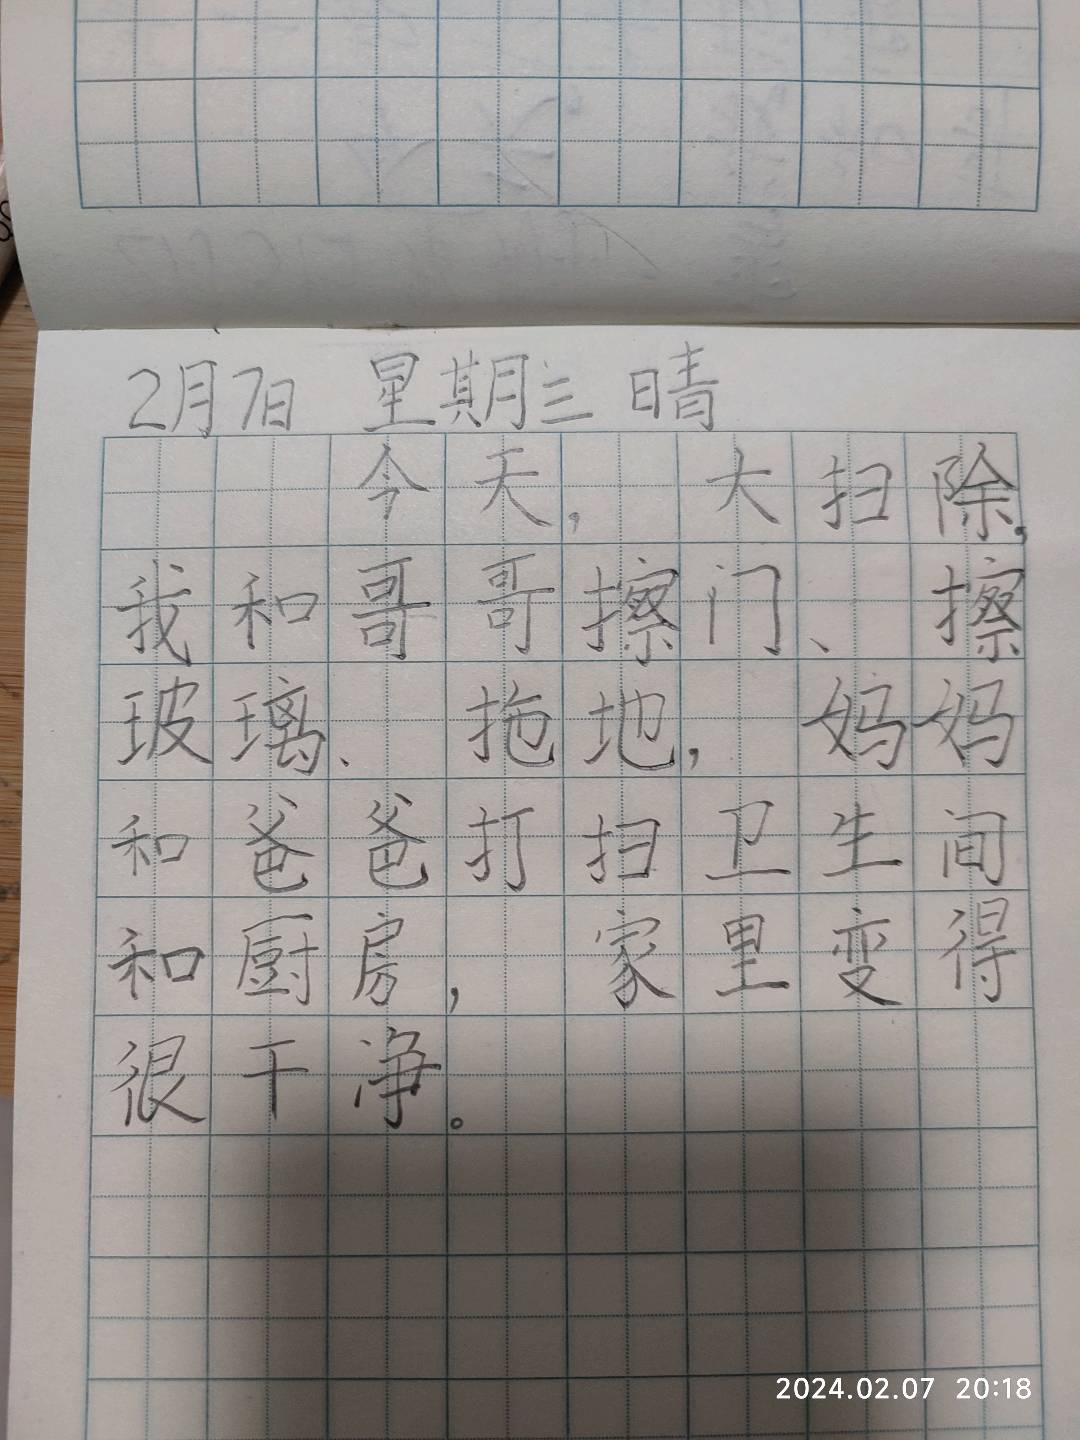 2月7日 星期三 晴
今天，大扫除，
我和哥哥擦门、擦
玻璃、拖地，妈妈
和爸爸打扫卫生间
和厨房，家里变得
很干净。
2024.02.07 20:18